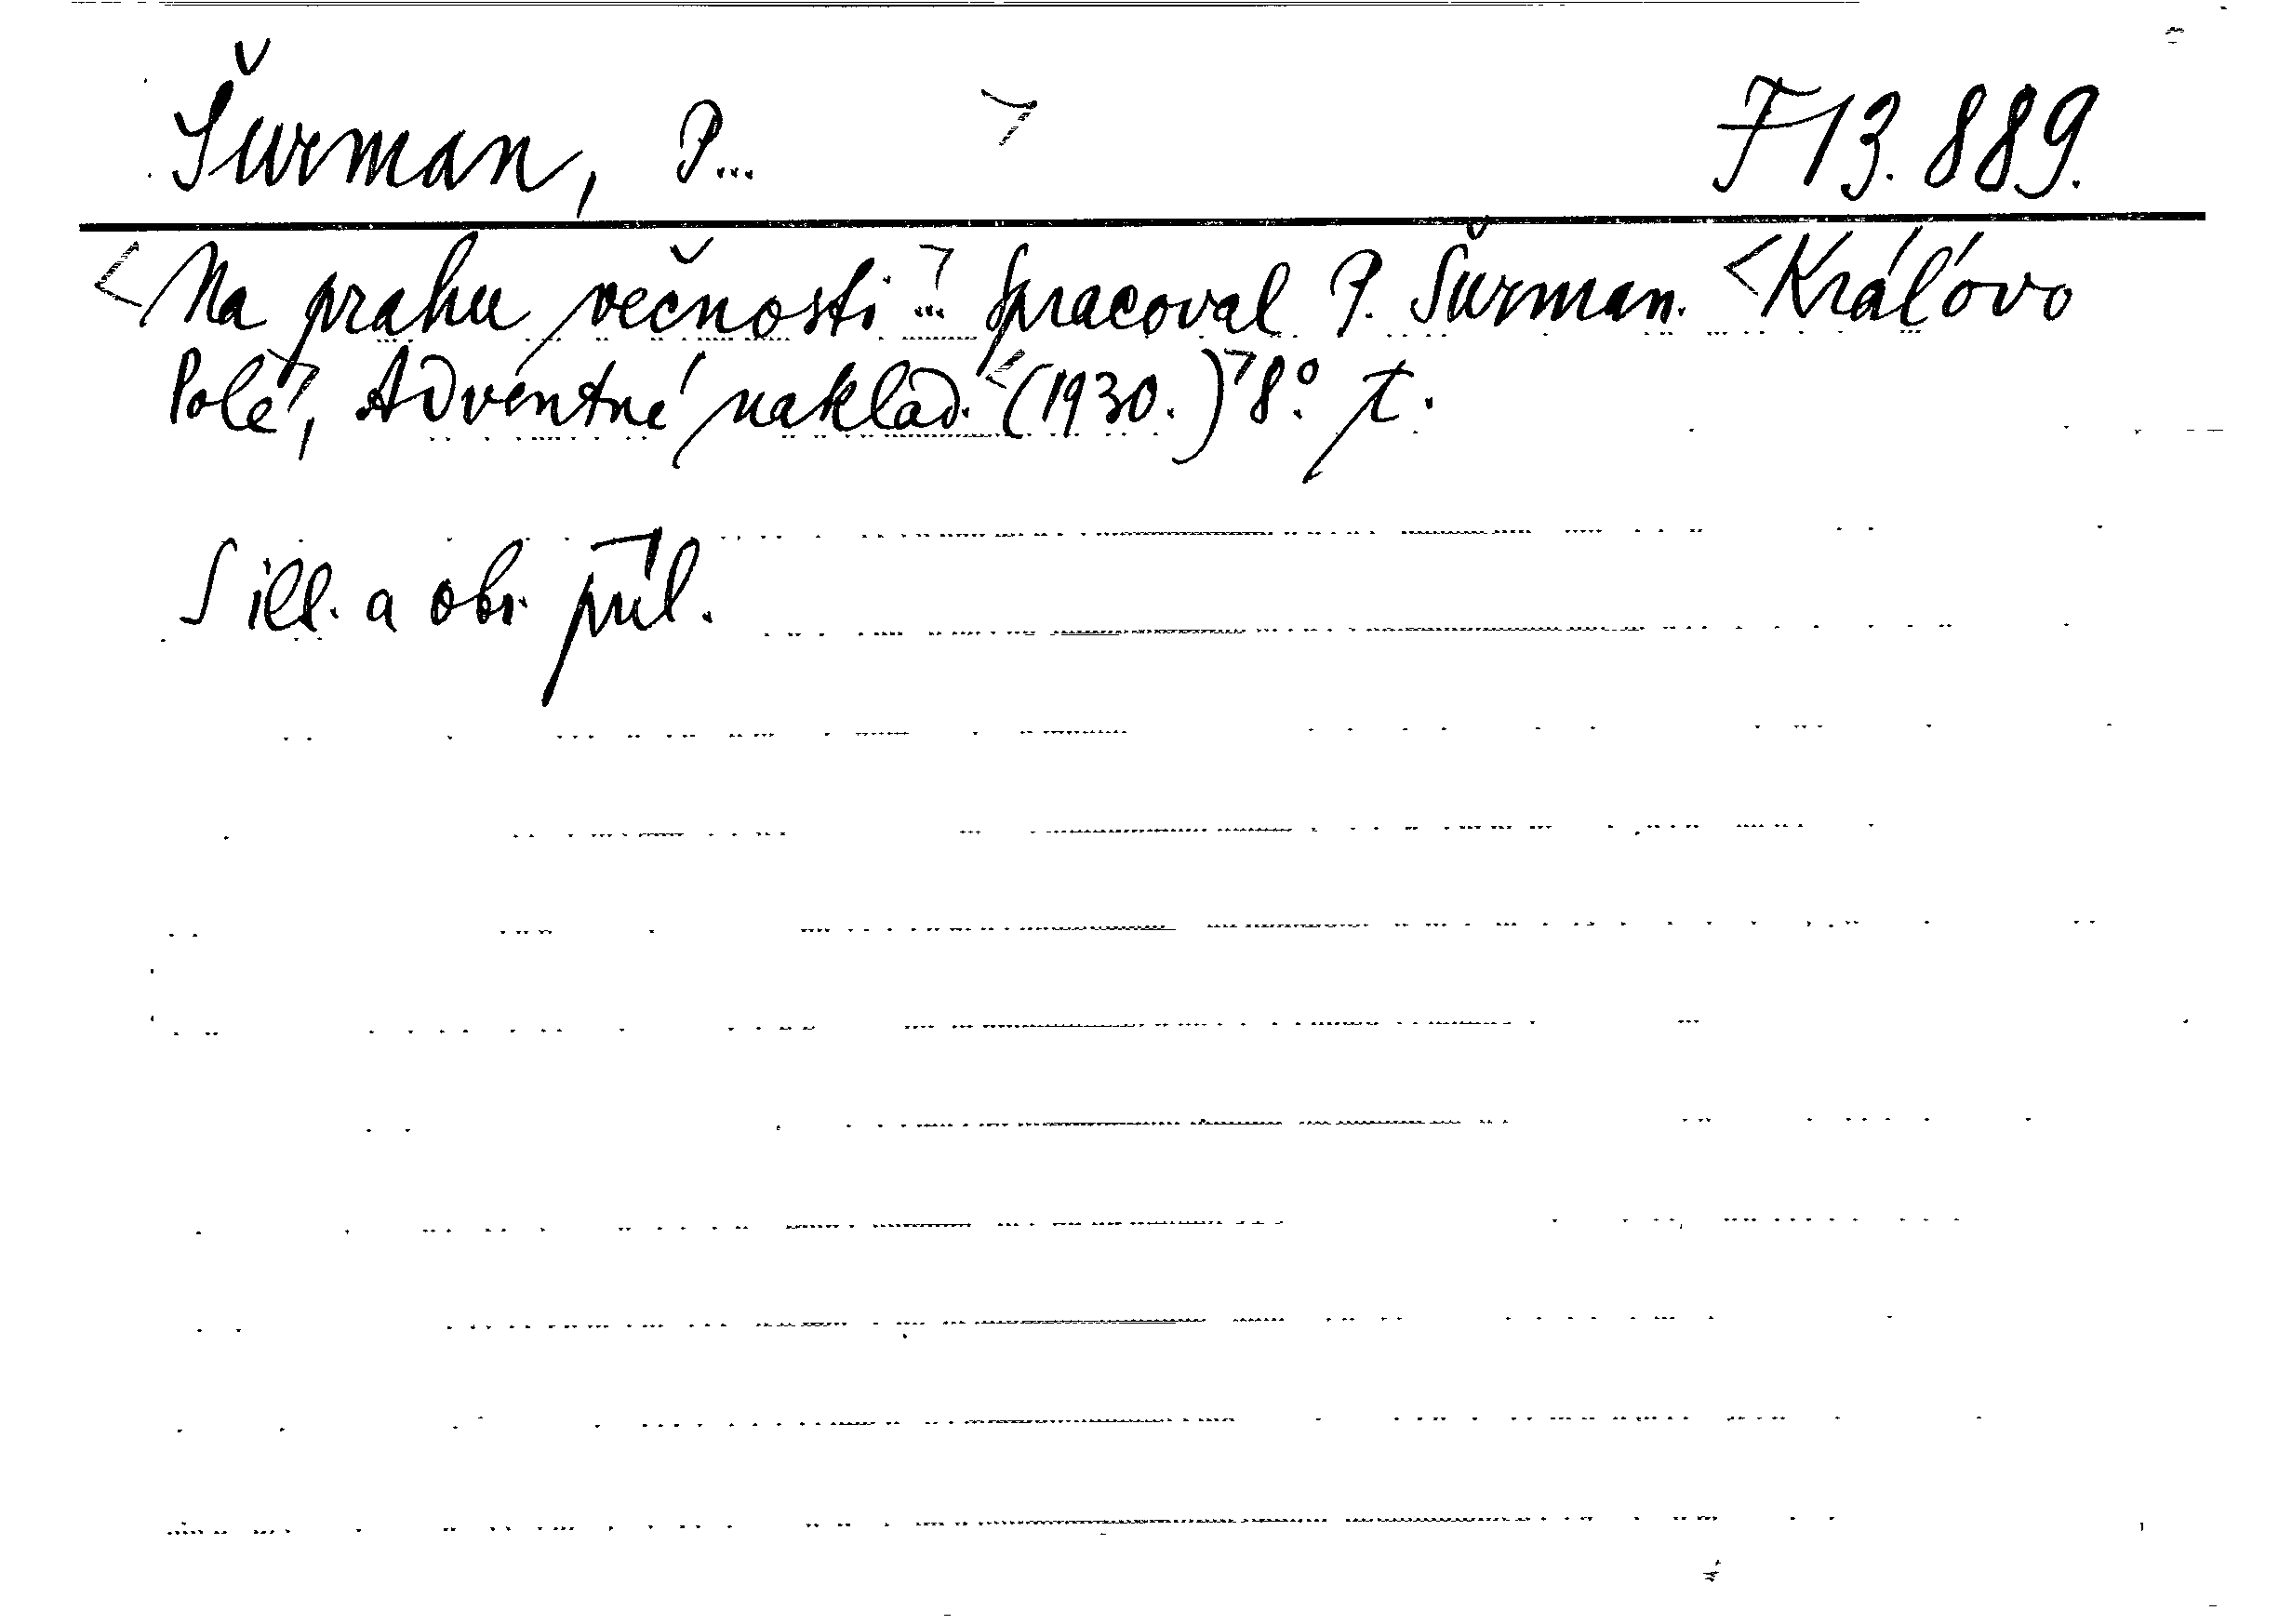 Šurman, P... > F 13.889.
<Na prahu večnosti...> Spracoval P. Šurman. <Kráľovo
Pole>, Adventné naklad. <(1930.)> 8°. t.
S ill. a obr. príl.